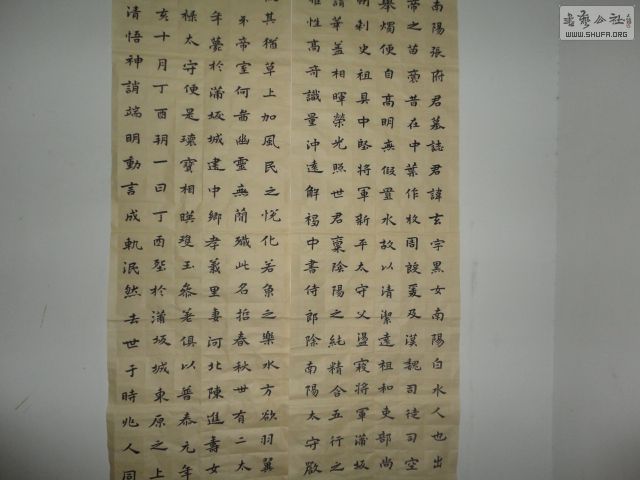 書藝公社
WWW.SHUFA.ORG
南陽張府君墓誌君諱玄字黑女南陽白水人也出
帝之苗裔昔在中葉作牧周殷爰及漢魏司徒司空
舉燭便自高明無假置水故以清潔遠祖和吏部尚
州刺史祖具中堅將軍新平太守父盪寇將軍蒲坂
華蓋相暉榮光照世君稟陰陽之純精含五行之
雅性高奇識量沖遠解褐中書侍郎除南陽太守嚴
其猶草上加風民之悅化若魚之樂水方欲羽翼
帝室何啚幽靈無簡殲此名哲春秋世有二太
年薨於蒲坂城建中鄉孝義里妻河北陳進壽女
祿太守便是瓌寶相暎瓊玉參差俱以普泰元年
亥十月丁酉朔一日丁酉塟於蒲坂城東原之上
清悟神誚端明動言成軌泯然去世于時兆人同